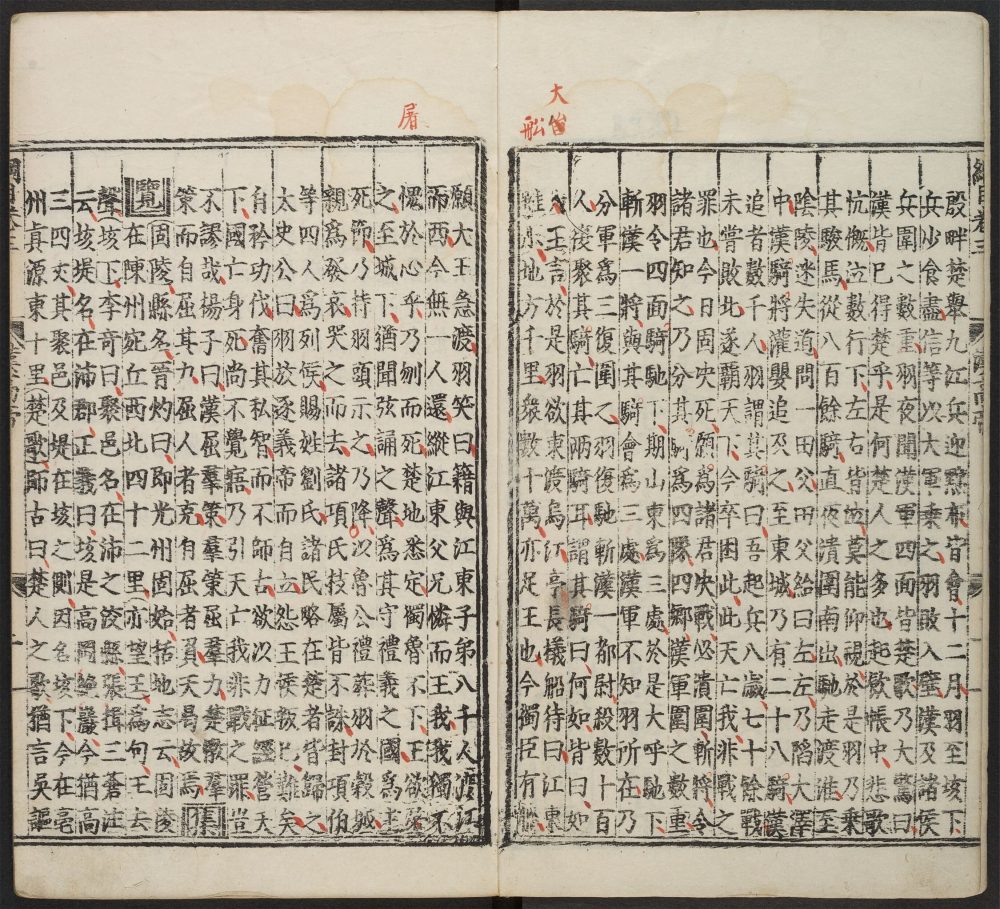 大皆
船
屠
綱目卷三
漢高帝
殷畔楚舉九江兵迎黥布皆會十二月羽至垓下
兵少食盡信等以大軍乗之羽敗入壁漢及諸侯
兵圍之數重羽夜聞漢軍四面皆楚歌乃大驚曰
漢皆已得楚乎是何楚人之多也起飲帳中悲歌
忼慨泣數行下左右皆泣莫能仰視於是羽乃乗
其駿馬從八百餘騎直夜潰圍南出馳走渡淮至
陰陵迷失道問一田父田父紿曰左左乃陷大澤
中漢騎將灌嬰追及之至東城乃有二十八騎漢
追者數千人羽謂其騎曰吾起兵八歲七十餘戰
未嘗敗北遂霸天下今卒困此此天亡我非戰之
罪也今日固决死願爲諸君决戰必潰圍斬將令
諸君知之乃分其騎爲四隊四鄉漢軍圍之數重
羽令四面騎馳下期山東爲三處於是大呼馳下
斬漢一將與其騎會爲三處漢軍不知羽所在乃
分軍爲三復圍之羽復馳斬漢一都尉殺數十百
人復聚其騎亡其兩騎耳謂其騎曰何如皆曰如
大王言於是羽欲東渡烏江亭長檥船待曰江東
雖小地方千里衆數十萬亦足王也今獨臣有船
願大王急渡羽笑曰籍與江東子弟八千人渡江
而西今無一人還縱江東父兄憐而王我我獨不
愧於心乎乃刎而死楚地悉定獨魯不下王欲屠
之至城下猶聞弦誦之聲爲其守禮義之國爲主
死節乃持羽頭示之乃降以魯公禮葬羽於穀城
親爲發哀哭之而去諸項氏枝屬皆不誅封項伯
等四人爲列侯賜姓劉氏諸民略在楚者皆歸之
太史公曰羽於逐義帝而自立怨王侯叛已難矣
自矜功伐奮其私智而不師古欲以力征經營天
下國亡身死尚不覺寤乃引天亡我非戰之罪豈
不謬哉揚子曰漢屈羣策羣策屈羣力楚憞羣
策而自屈其九屈人者克自屈者負天曷故焉集
覽固陵縣名晉灼曰即光州固始括地志云固陵
在陳州宛丘西北四十二里亦望王爲句王去
聲垓下李奇曰聚邑名在沛之洨縣張揖三蒼注
云垓堤名在沛郡正義曰垓是高岡絶巖今猶高
三四丈其聚邑及堤在垓之側因名垓下今在亳
州真源東十里楚歌師古曰楚人之歌猶言吳謳